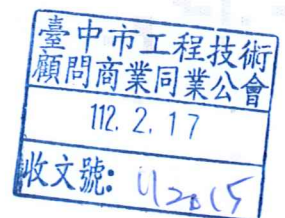 臺中市工程技術
顧問商業同業公會
112. 2. 17
收文號: